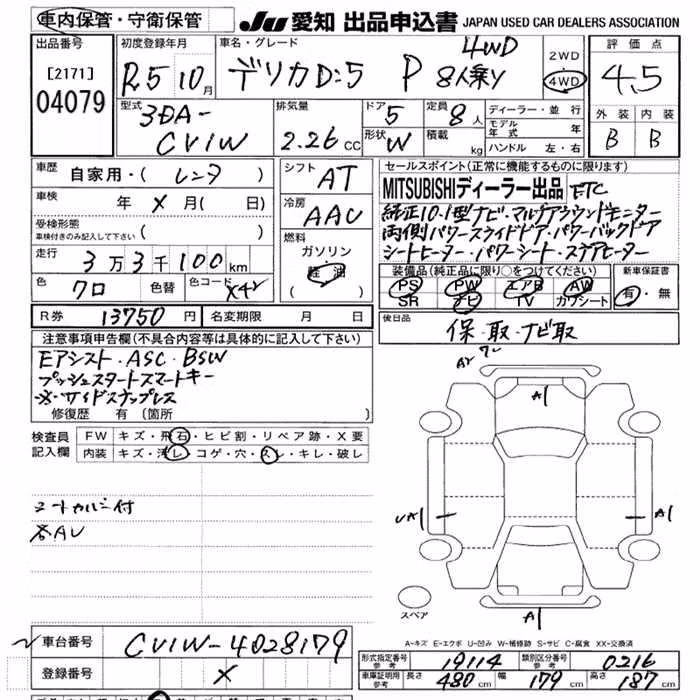 車内保管・守衛保管 JU 愛知 出品申込書 JAPAN USED CAR DEALERS ASSOCIATION
出品番号 初度登録年月 車名・グレード 4WD 2WD 評価点
[2171] R5 10月 デリカD:5 P 8人乗り 4WD 4.5
04079 型式 排気量 ドア 定員 ディーラー・並行 外装 内装
3DA- 5 8人 モデル年式 年
CV1W 2.26 CC 形状 W 積載 kg ハンドル 左・右 B B
車歴 自家用・( レンタ ) シフト AT セールスポイント(正常に機能するものに限ります)
車検 年 X 月( 日) 冷房 AAC MITSUBISHIディーラー出品 ETC
受検形態 純正10.1型ナビ・マルチアラウンドモニター
車検付きのみ記入して下さい ( ) 燃料 両側パワースライドドア・パワーバックドア
走行 3万3千100km ガソリン シートヒーター・パワーシート・ステアヒーター
軽油 装備品(純正品に限り○をつけてください) 新車保証書
色 クロ 色替 色コード X42 ( ) PS PW エアB AW 有・無
SR ナビ TV カワシート
R券 13750円 名変期限 月 日 後日品 保・取・ナビ取
注意事項申告欄(不具合内容等は具体的に記入して下さい)
Eアシスト・ASC・BSW
プッシュスタートスマートキー
修復歴 有(箇所 )
検査員 FW キズ・飛石・ヒビ割・リペア跡・X要
記入欄 内装 キズ・汚レ・コゲ・穴・スレ・キレ・破レ
A1
A1
A1
A1
各AU
スペア
A-キズ E-エクボ U-凹み W-補修跡 S-サビ C-腐食 XX-交換済
車台番号 CV1W-4028179 形式指定番号 参考 19114 類別区分番号 参考 0216
登録番号 X 車庫証明用 参考 長さ 480cm 幅 179cm 高さ 187cm